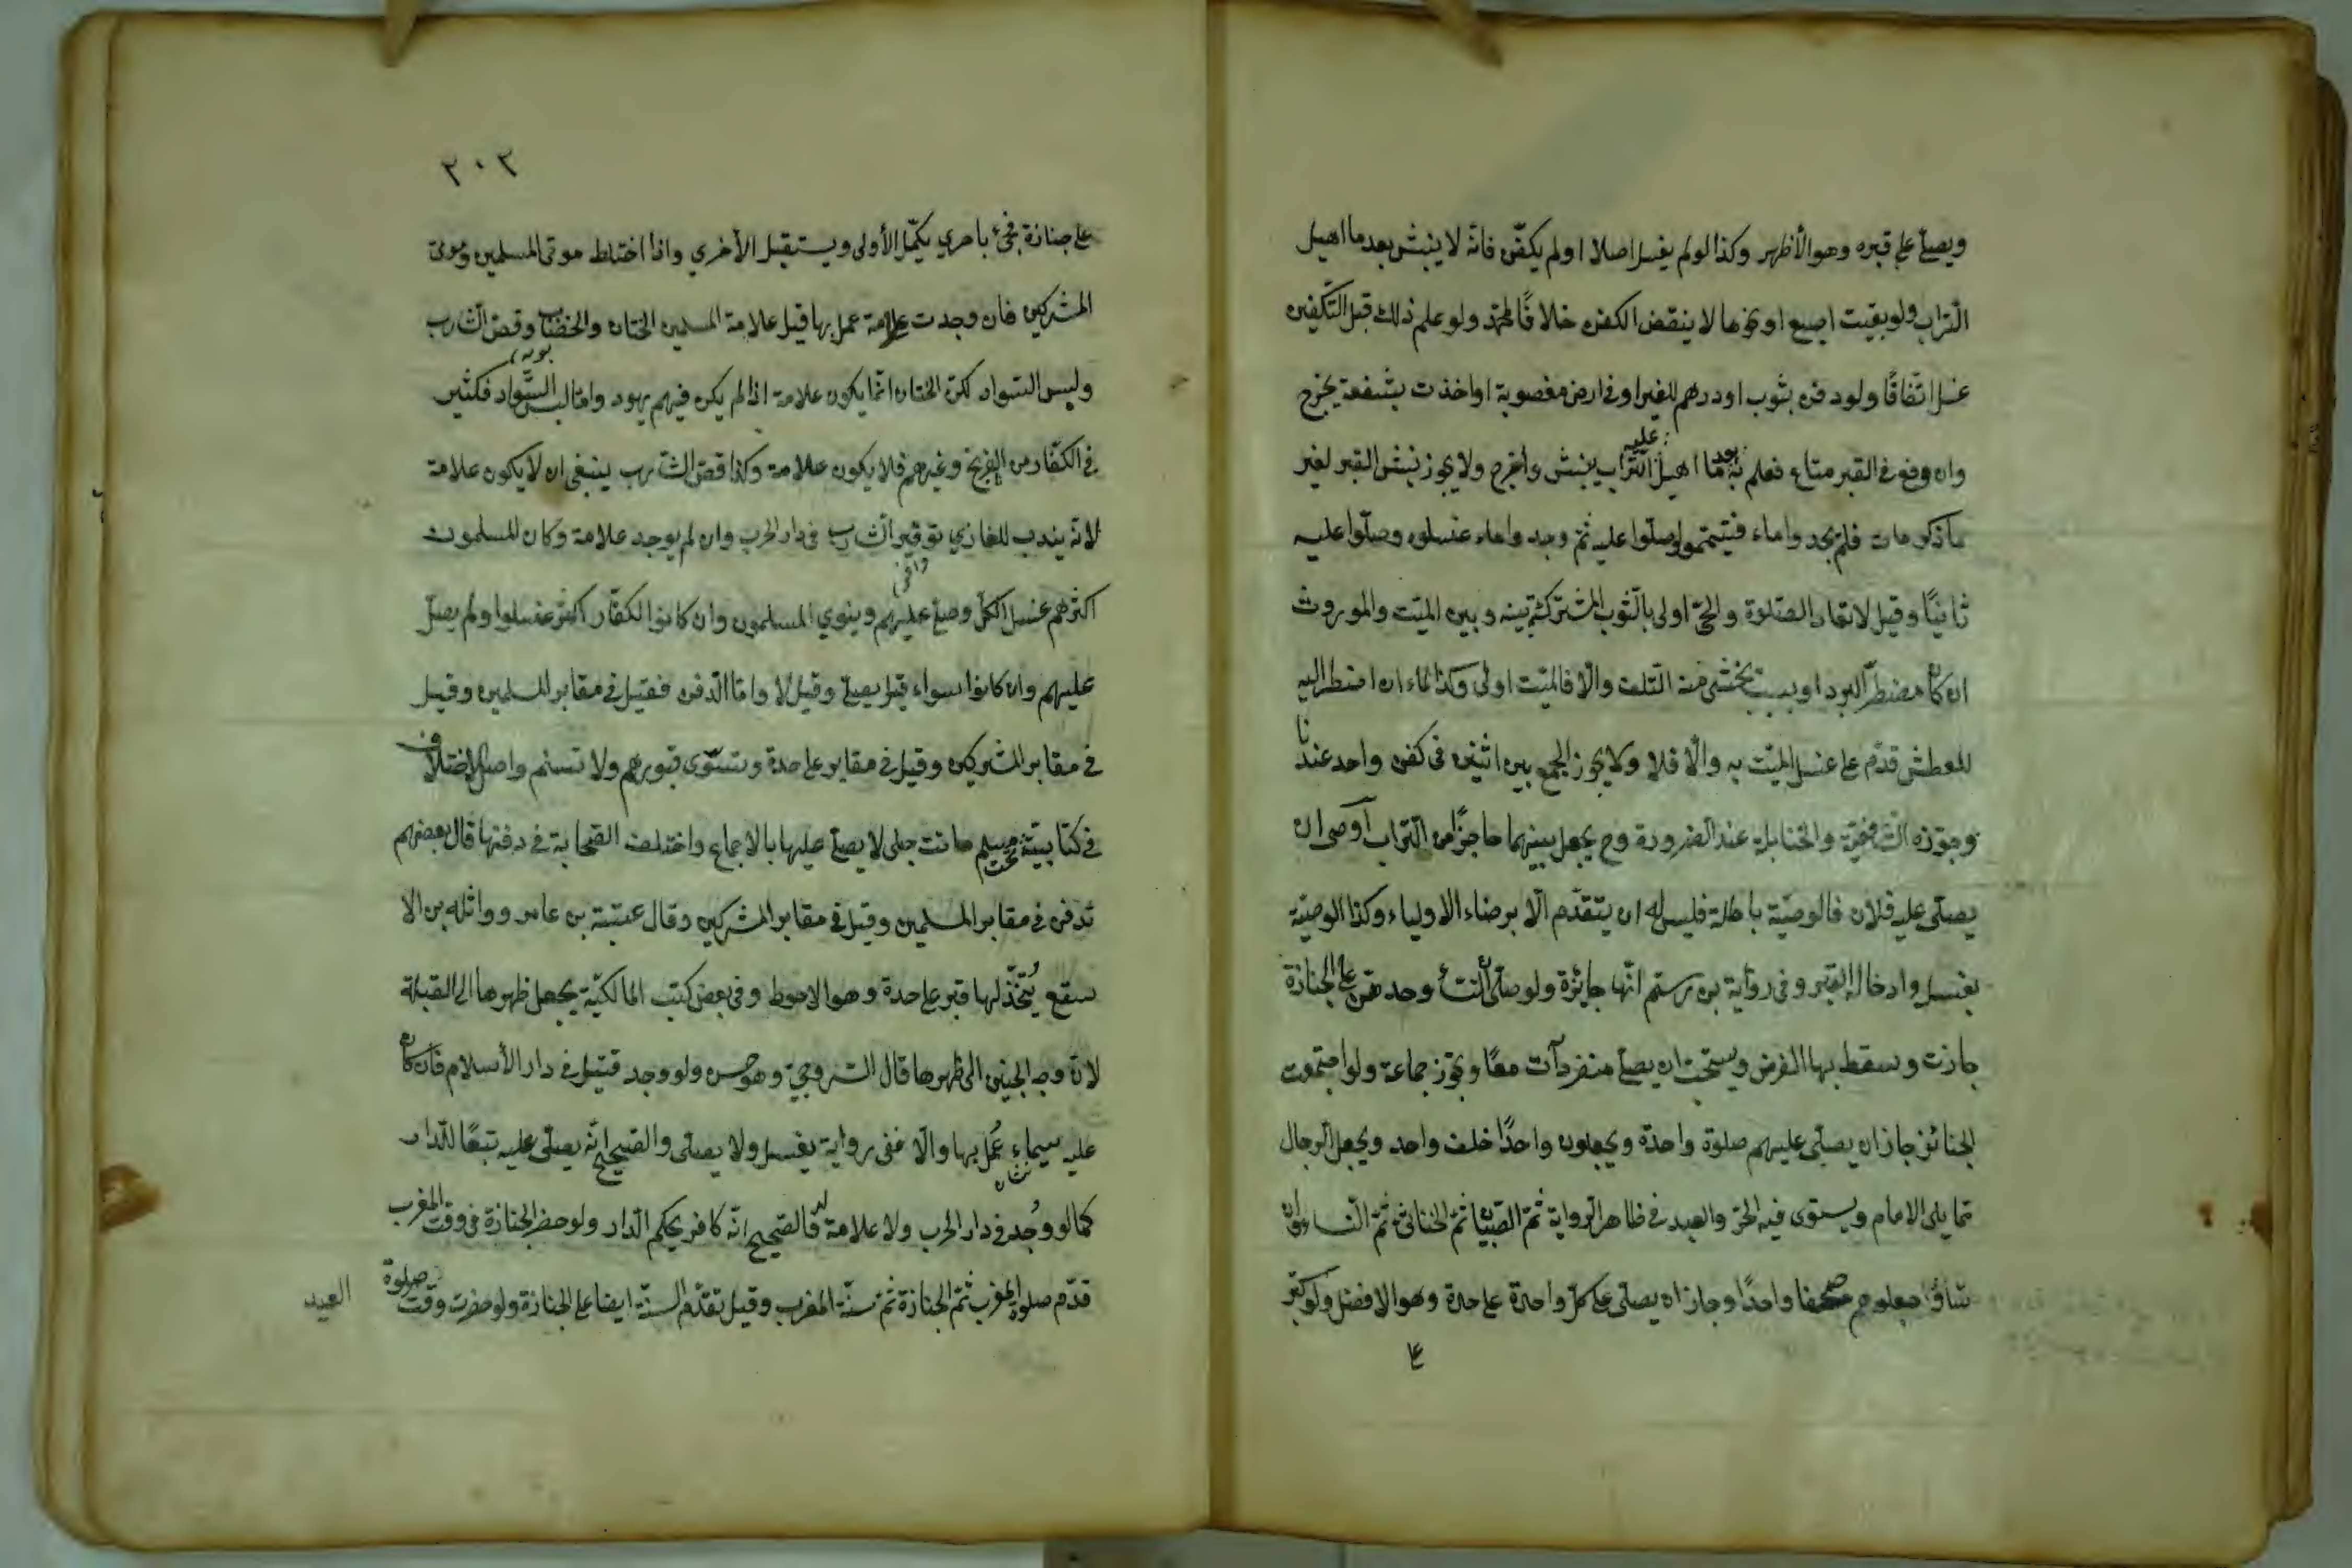 ويصلّى على قبره وهو الأظهر وكذا لو لم يغسل اصلا او لم يكفّن فانّه لا ينبش بعد ما اهيل
التّراب ولو بقيت اصبع او نحوها لا ينقض الكفن خلافًا لمحمّد ولو علم ذلك قبل التّكفين
غسل اتّفاقًا ولو دفن بثوب او درهم للغير او فى ارض مغصوبة او اخذت بشفعة يخرج
وان وقع فى القبر متاع فعلم به بعد ما اهيل عليه التّراب ينبش واخرج ولا يجوز نبش القبر لغير
ما ذكر مات فلم يجدوا ماء فتيمّموا وصلّوا عليه ثمّ وجدوا ماء غسلوه وصلّوا عليه
ثانيًا وقيل لا تعاد الصّلوة والحىّ اولى بالثّوب المشترك بينه وبين الميّت والموروث
ان كان مضطرّ البرد او بسبب يخشى منه التّلف والّا فالميّت اولى وكذا الماء ان اضطر اليه
للعطش قدّم على غسل الميّت به والّا فلا ولا يجوز الجمع بين اثنين فى كفن واحد عندنا
وجوّزه الشّافعيّة والحنابلة عند الضّرورة وح يجعل بينهما حاجزًا من التّراب اوصى ان
يصلّى عليه فلان فالوصيّة باطلة فليس له ان يتقدّم الّا برضاء الاولياء وكذا الوصيّة
بغسل وادخال القبر وفى رواية بن رستم انّها جائزة ولو صلّى النّساء وحدهنّ على الجنازة
جازت وسقط بها الفرض ويستحبّ ان يصلّى منفردات معًا ويجوز جماعة ولو اجتمعت
الجنائز جاز ان يصلّى عليهم صلوة واحدة ويجعلون واحدًا خلف واحد ويجعل الرجال
ممّا يلى الامام ويستوى فيه الحرّ والعبد فى ظاهر الرّواية ثمّ الصّبيان ثمّ الخناثى ثمّ النّساء وان
شاؤا جعلوهم صفّا واحدًا وجاز ان يصلّى على كلّ واحدة على حدة وهو الافضل ولو كبّر
على
٣٠٣
على جنازة فجىء باخرى يكمّل الأولى ويستقبل الأخرى واذا اختلط موتى المسلمين وموتى
المشركين فان وجدت علامة عمل بها قيل علامة المسلمين الختان والخضاب وقصّ الشّارب
وليس السّواد لكن الختان انّما يكون علامة اذا لم يكن فيهم يهود وامّا لبس السّواد فكثير
فى الكفّار من الفرنج وغيرهم فلا يكون علامة وكذا قصّ الشّارب ينبغى ان لا يكون علامة
لانّه يندب للغازي توفير الشّارب فى دار الحرب وان لم يوجد علامة وكان المسلمون
اكثرهم غسل الكلّ وصلّى عليهم وينوي المسلمون وان كانوا الكفّار اكثر غسلوا ولم يصلّ
عليهم وان كانوا سواء قيل يصلّى وقيل لا وامّا الدّفن فقيل فى مقابر المسلمين وقيل
فى مقابر المشركين وقيل فى مقابر على حدة وتسوّى قبورهم ولا تسنم واصل الاختلاف
فى كتابيّة تحت مسلم ماتت حبلى لا يصلّى عليها بالاجماع واختلف الصّحابة فى دفنها قال بعضهم
تدفن فى مقابر المسلمين وقيل فى مقابر المشركين وقال عقبة بن عامر وواثلة بن الا
سقع يُتّخذ لها قبر على حدة وهو الاحوط وفى بعض كتب المالكيّة يجعل ظهرها الى القبلة
لانّ وجه الجنين الى ظهرها قال السّروجىّ وهو حسن ولو وجد قتيل فى دار الأسلام فان كان
عليه سيماء عُمل بها والّا ففى رواية يغسل ولا يصلّى والصّحيح انّه يصلّى عليه تبعًا للدّار
كما لو وُجد فى دار الحرب ولا علامة له فالصّحيح انّه كافر بحكم الدّار ولو حضر الجنازة فى وقت المغرب
قدّم صلوة المغرب ثمّ الجنازة ثمّ سنّة المغرب وقيل تقدّم السنّة ايضا على الجنازة ولو حضرت وقت صلوة
العيد